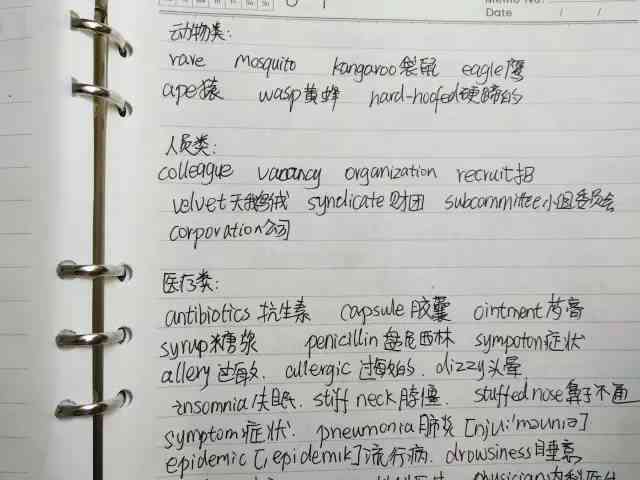 Memo No.
Date / /
动物类:
rare mosquito kangaroo袋鼠 eagle鹰
ape猿 wasp黄蜂 hard-hoofed硬蹄的
人员类:
colleague vacancy organization recruit招
velvet天鹅绒 syndicate财团 subcommittee小组委员会
corporation公司
医药类:
antibiotics抗生素 capsule胶囊 ointment药膏
syrup糖浆 penicillin盘尼西林 sympoton症状
allery过敏. allergic过敏的. dizzy头晕
insomnia失眠. stiff neck脖僵 stuffed nose鼻子不通
symptom症状. pneumonia肺炎[nju:'məunia]
epidemic[,epidemik]流行病. drowsiness睡意
physician内科医生